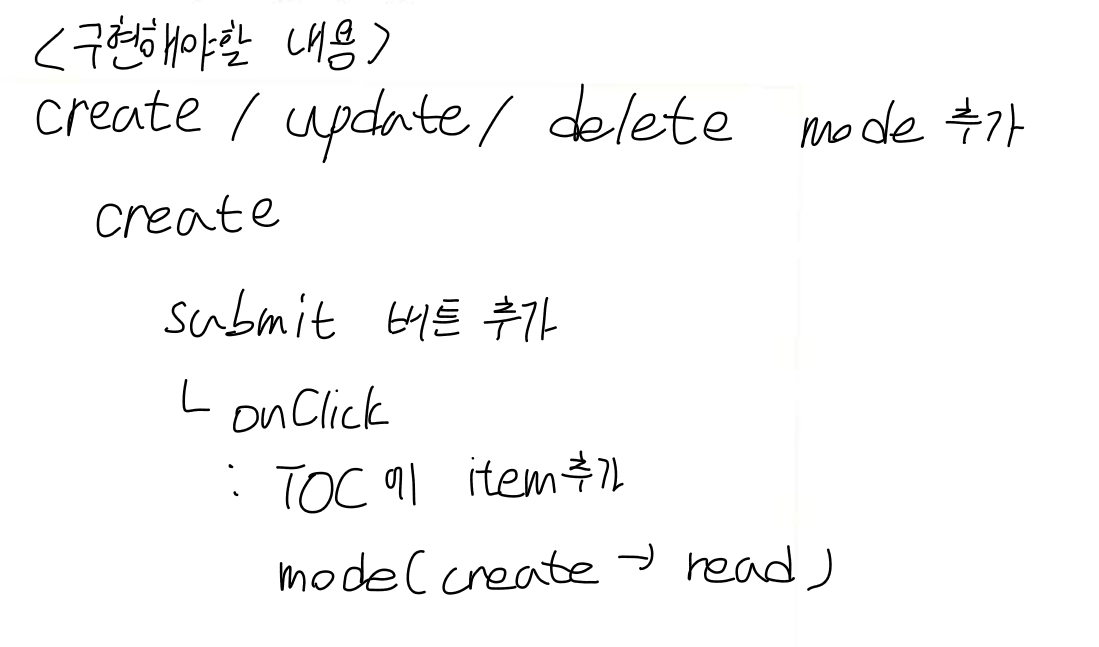 <구현해야할 내용>
create / update / delete mode 추가
create
submit 버튼 추가
ㄴ onClick
: TOC에 item추가
mode(create → read)